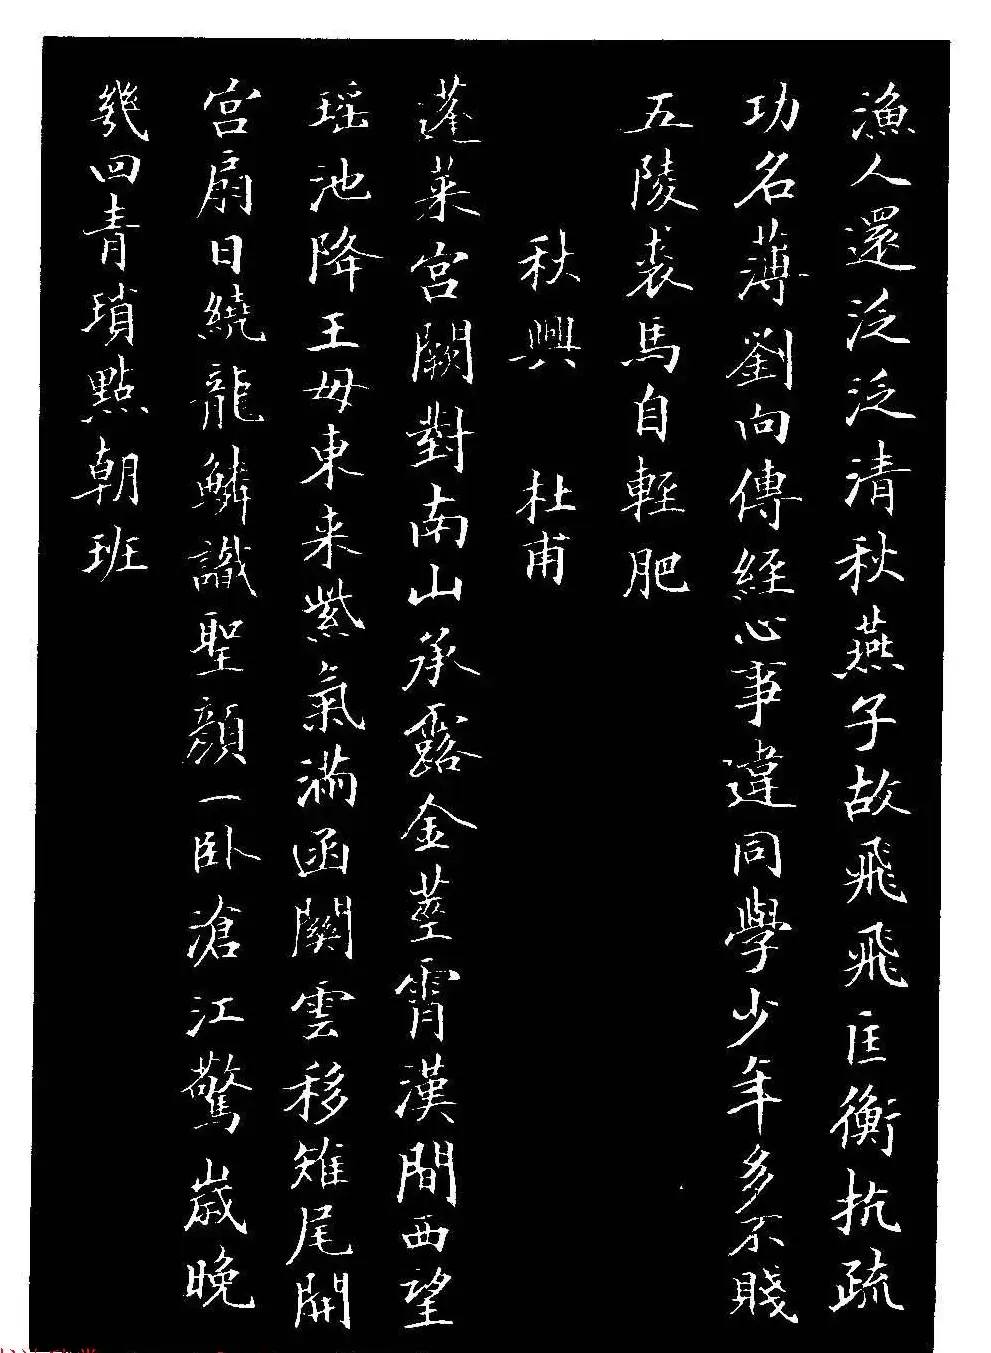 漁人還泛泛清秋燕子故飛飛匡衡抗疏
功名薄劉向傳經心事違同學少年多不賤
五陵裘馬自輕肥
秋興 杜甫
蓬萊宮闕對南山承露金莖霄漢間西望
瑶池降王母東来紫氣滿函關雲移雉尾開
宮扇日繞龍鱗識聖顏一卧滄江驚歲晚
幾回青瑣點朝班